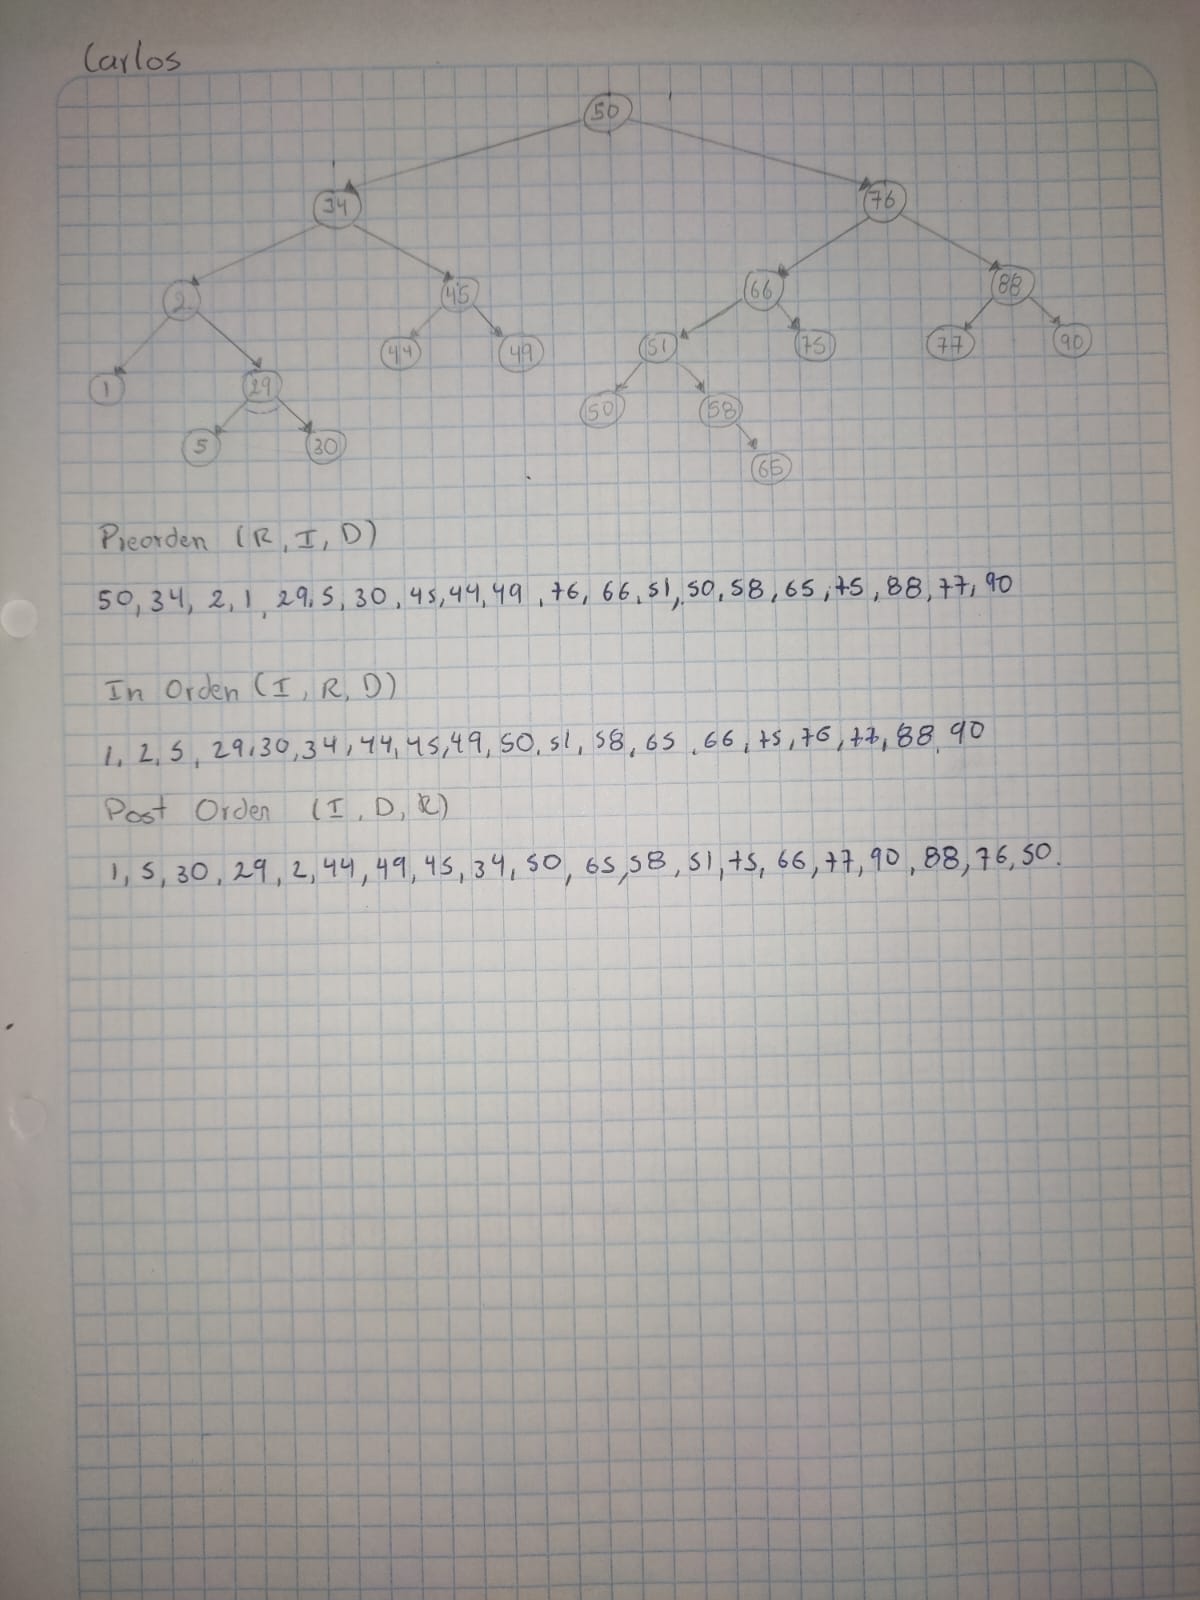 Carlos
50
34 76
2 45 66 88
44 49 51 75 77 90
1 29 50 58
5 30 65
Preorden (R, I, D)
50, 34, 2, 1, 29, 5, 30, 45, 44, 49, 76, 66, 51, 50, 58, 65, 75, 88, 77, 90
In Orden (I, R, D)
1, 2, 5, 29, 30, 34, 44, 45, 49, 50, 51, 58, 65, 66, 75, 76, 77, 88, 90
Post Orden (I, D, R)
1, 5, 30, 29, 2, 44, 49, 45, 34, 50, 65, 58, 51, 75, 66, 77, 90, 88, 76, 50.